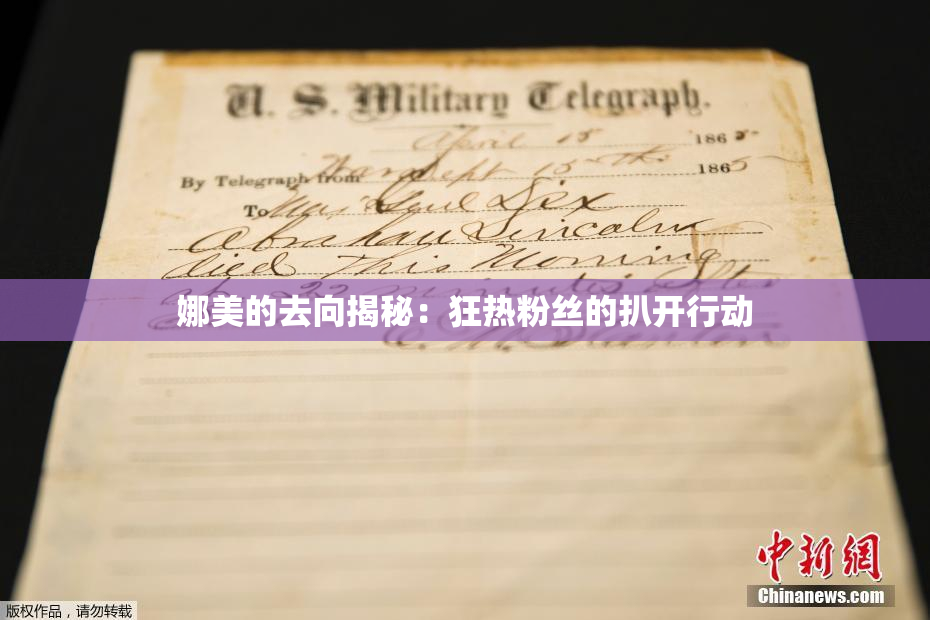 U. S. Military Telegraph.
April 15 1865
By Telegraph from War Dept 15th 1865
To Maj Genl Dix
Abraham Lincoln
died This Morning
at 22 minutes after
娜美的去向揭秘：狂热粉丝的扒开行动
E. M. Stanton
中新网
Chinanews.com
版权作品，请勿转载